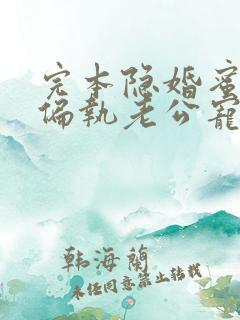 完本隐婚蜜
偏执老公宠
韩海兰
未经同意禁止转载